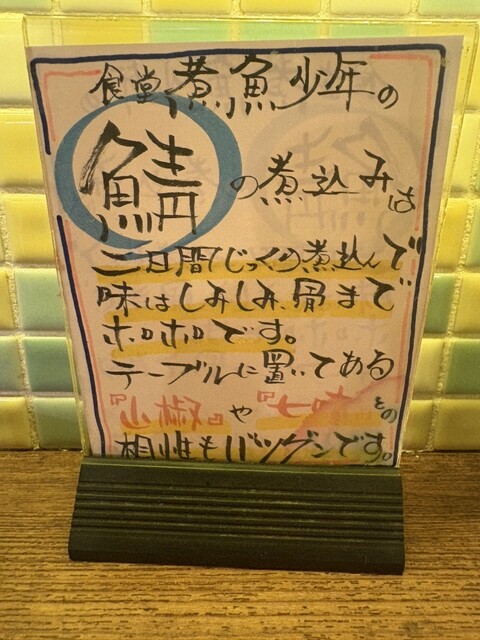 食堂煮魚少年の
鯖の煮込みは
三日間じっくり煮込んで
味はしみしみ、骨まで
ホロホロです。
テーブルに置いてある
『山椒』や『七味』その
相性もバツグンです。